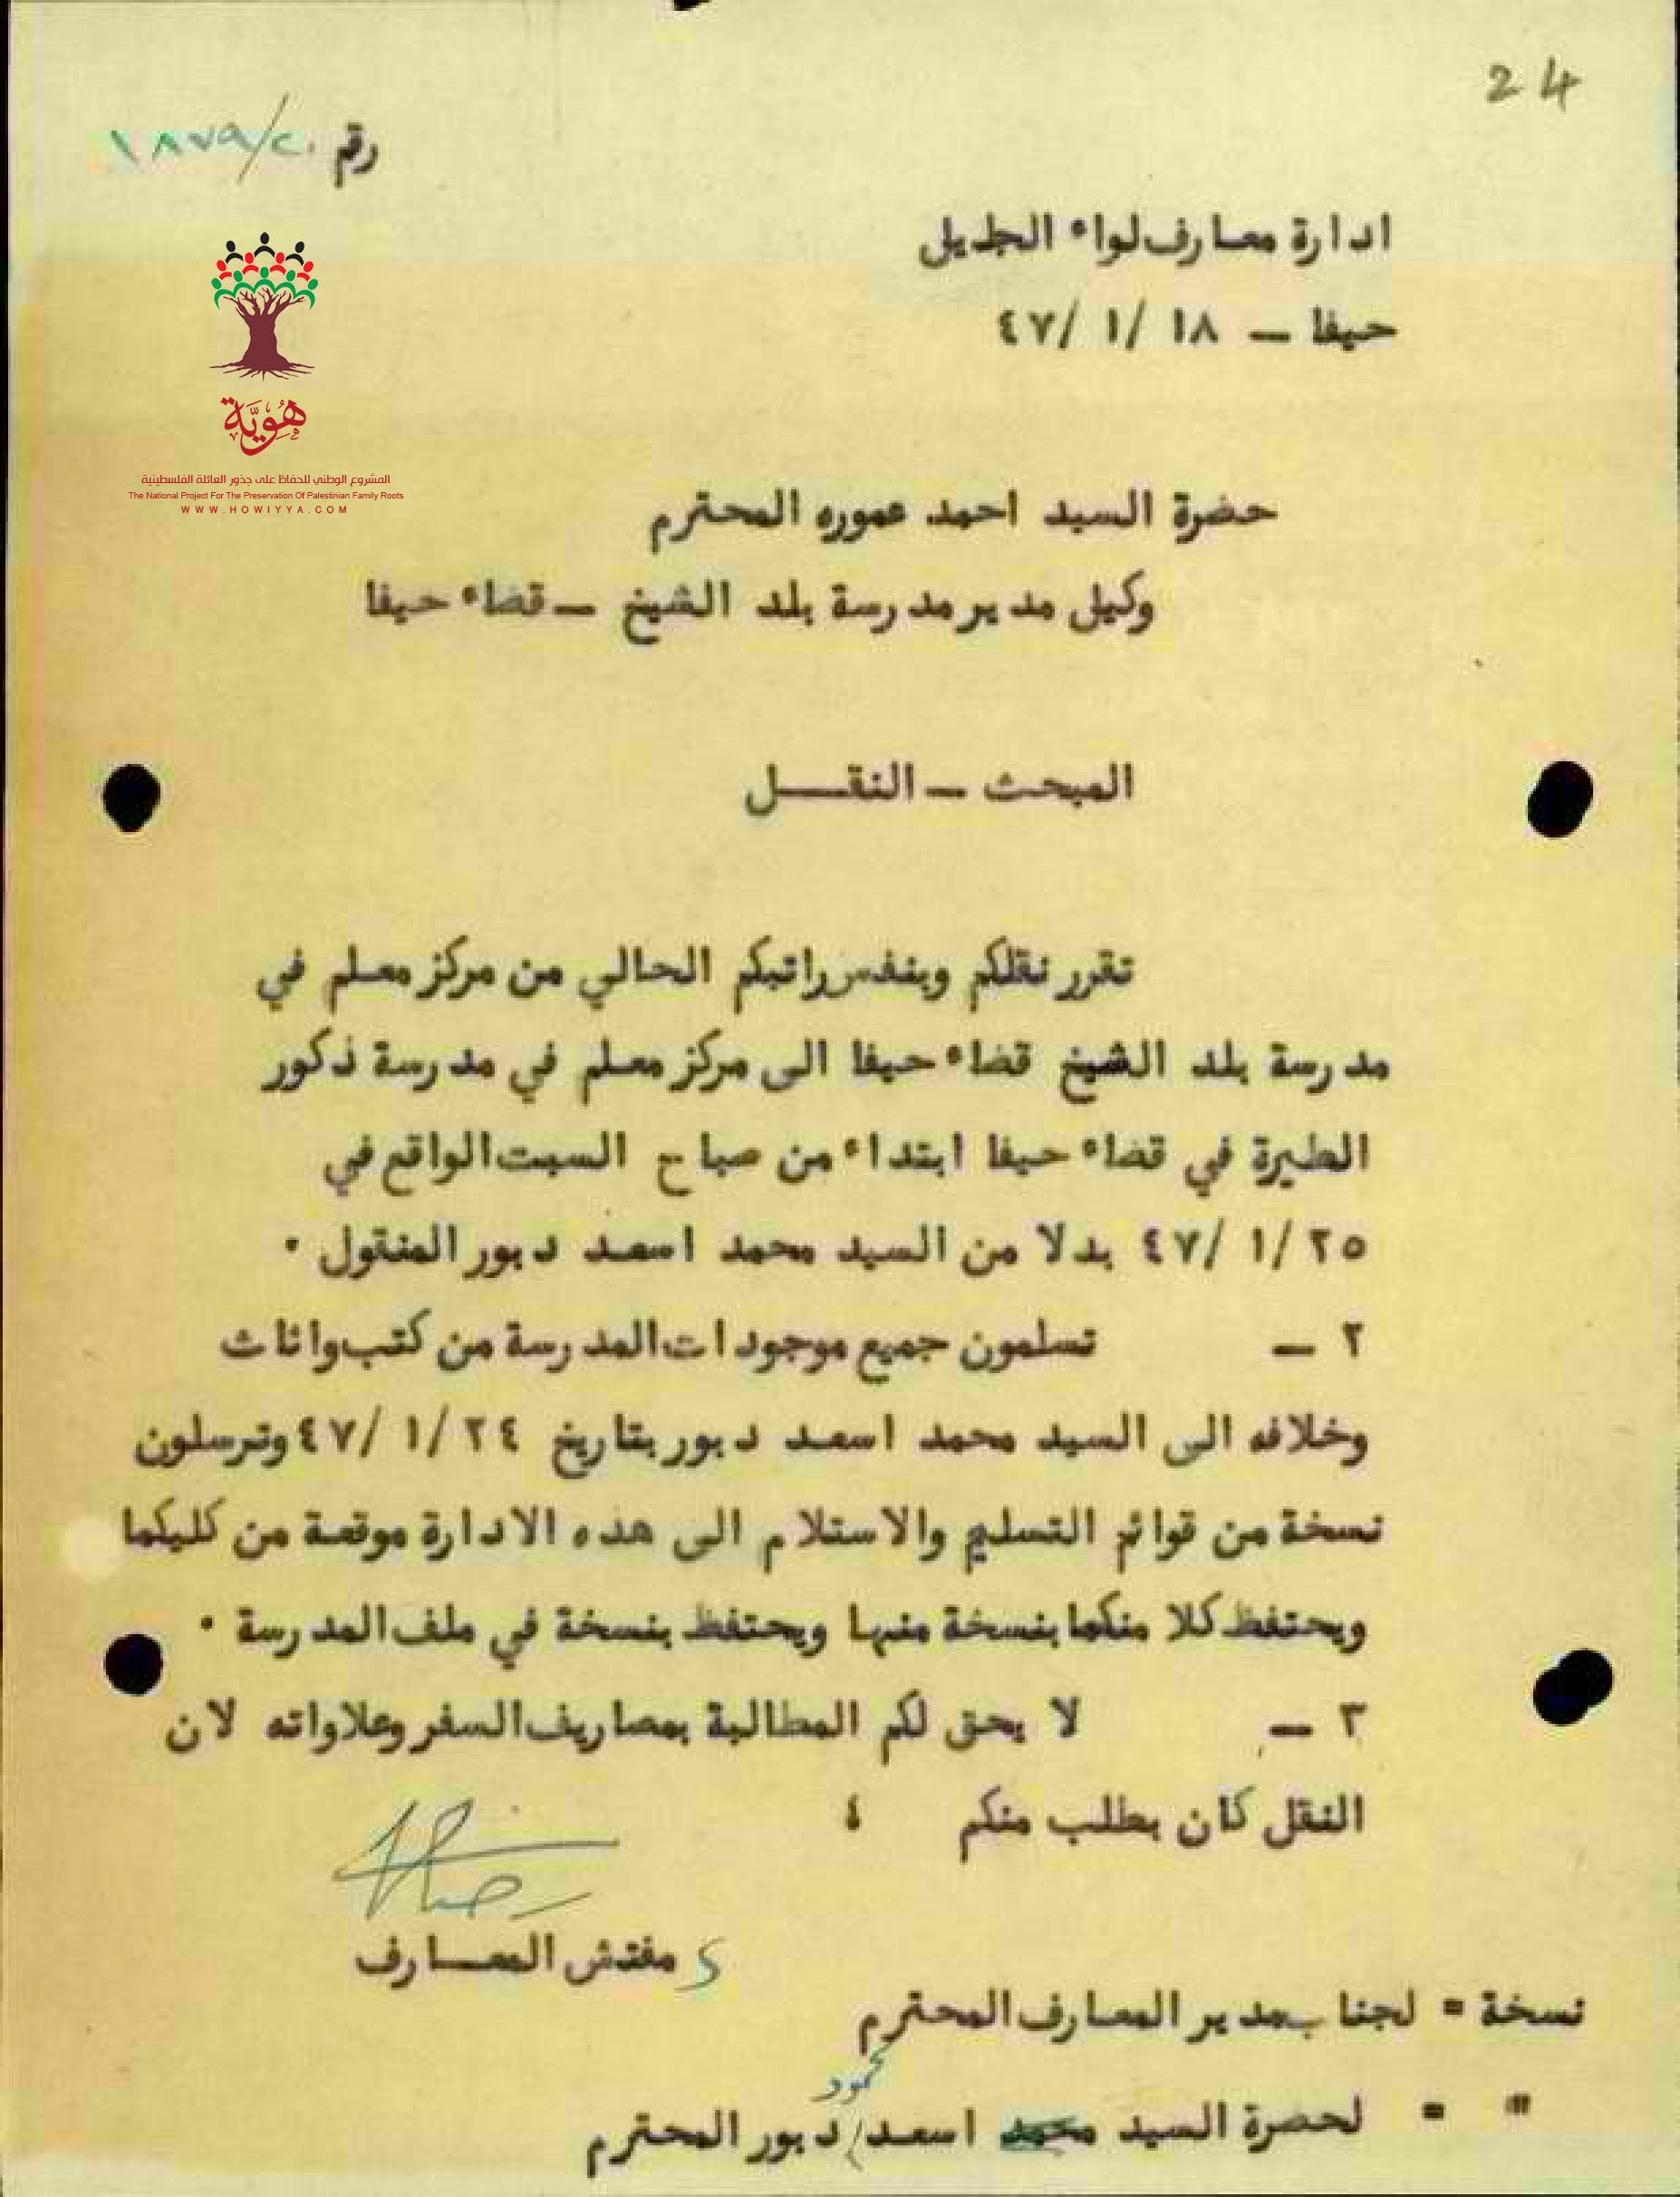 24
رقم ١٨٧٩/٢٠
ادارة معارف لواء الجليل
حيفا — ١٨ /١ /٤٧
هُويَّة
المشروع الوطني للحفاظ على جذور العائلة الفلسطينية
The National Project For The Preservation Of Palestinian Family Roots
WWW.HOWIYYA.COM
حضرة السيد احمد عموره المحترم
وكيل مدير مدرسة بلد الشيخ — قضاء حيفا
المبحث — النقــل
تقرر نقلكم وبنفس راتبكم الحالي من مركز معلم في
مدرسة بلد الشيخ قضاء حيفا الى مركز معلم في مدرسة ذكور
الطيرة في قضاء حيفا ابتداء من صباح السبت الواقع في
٢٥ /١ /٤٧ بدلا من السيد محمد اسعد دبور المنقول .
٢ — تسلمون جميع موجودات المدرسة من كتب واثاث
وخلافه الى السيد محمد اسعد دبور بتاريخ ٢٤ /١ /٤٧ وترسلون
نسخة من قوائم التسليم والاستلام الى هذه الادارة موقعة من كليكما
ويحتفظ كلا منكما بنسخة منها ويحتفظ بنسخة في ملف المدرسة .
٣ — لا يحق لكم المطالبة بمصاريف السفر وعلاواته لان
النقل كان بطلب منكم
مفتش المعــارف
نسخة = لجناب مدير المعارف المحترم
محمود
" = لحضرة السيد محمد اسعد/ دبور المحترم